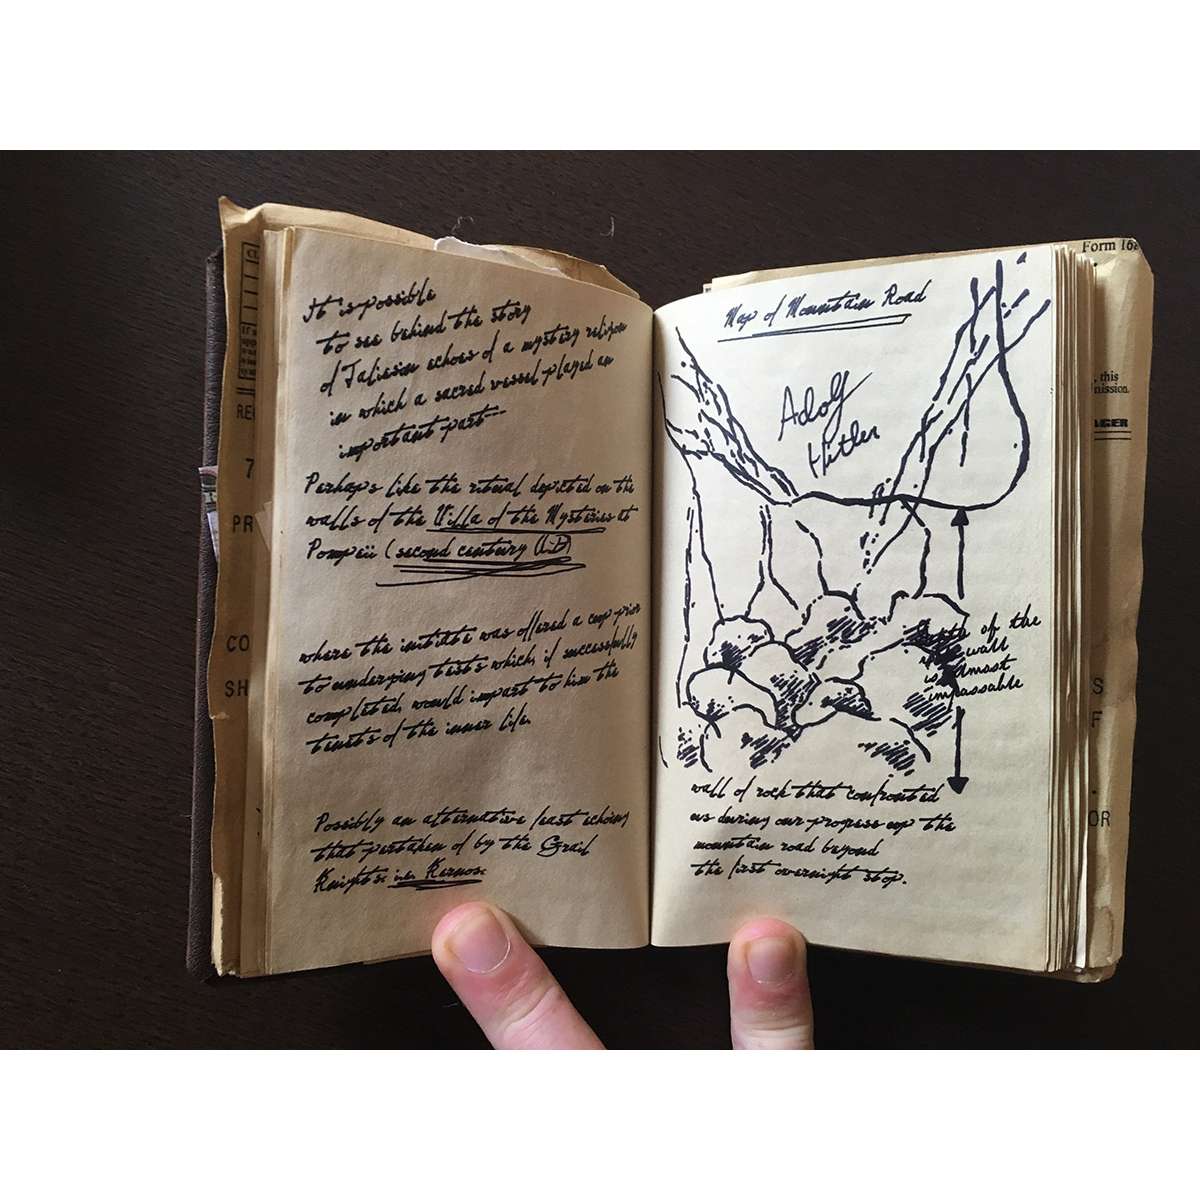 It is possible
to see behind the story
of Taliesin echoes of a mystery religion
in which a sacred vessel played an
important part--
Perhaps like the ritual depicted on the
walls of the Villa of the Mysteries at
Pompeii (second century A.D)
where the initiate was offered a cup prior
to undergoing tests which, if successfully
completed, would impart to him the
tenets of the inner life.
Possibly an alternative feast echoing
that partaken of by the Grail
Knights: i.e. Kernos.
RE
7
PR
CO
SH
Form 16
, this
mission.
AGER
S
F
OR
Map of Mountain Road
Adolf
Hitler
of the
wall
is almost
impassable
wall of rock that confronted
us during our progress up the
mountain road beyond
the first overnight stop.